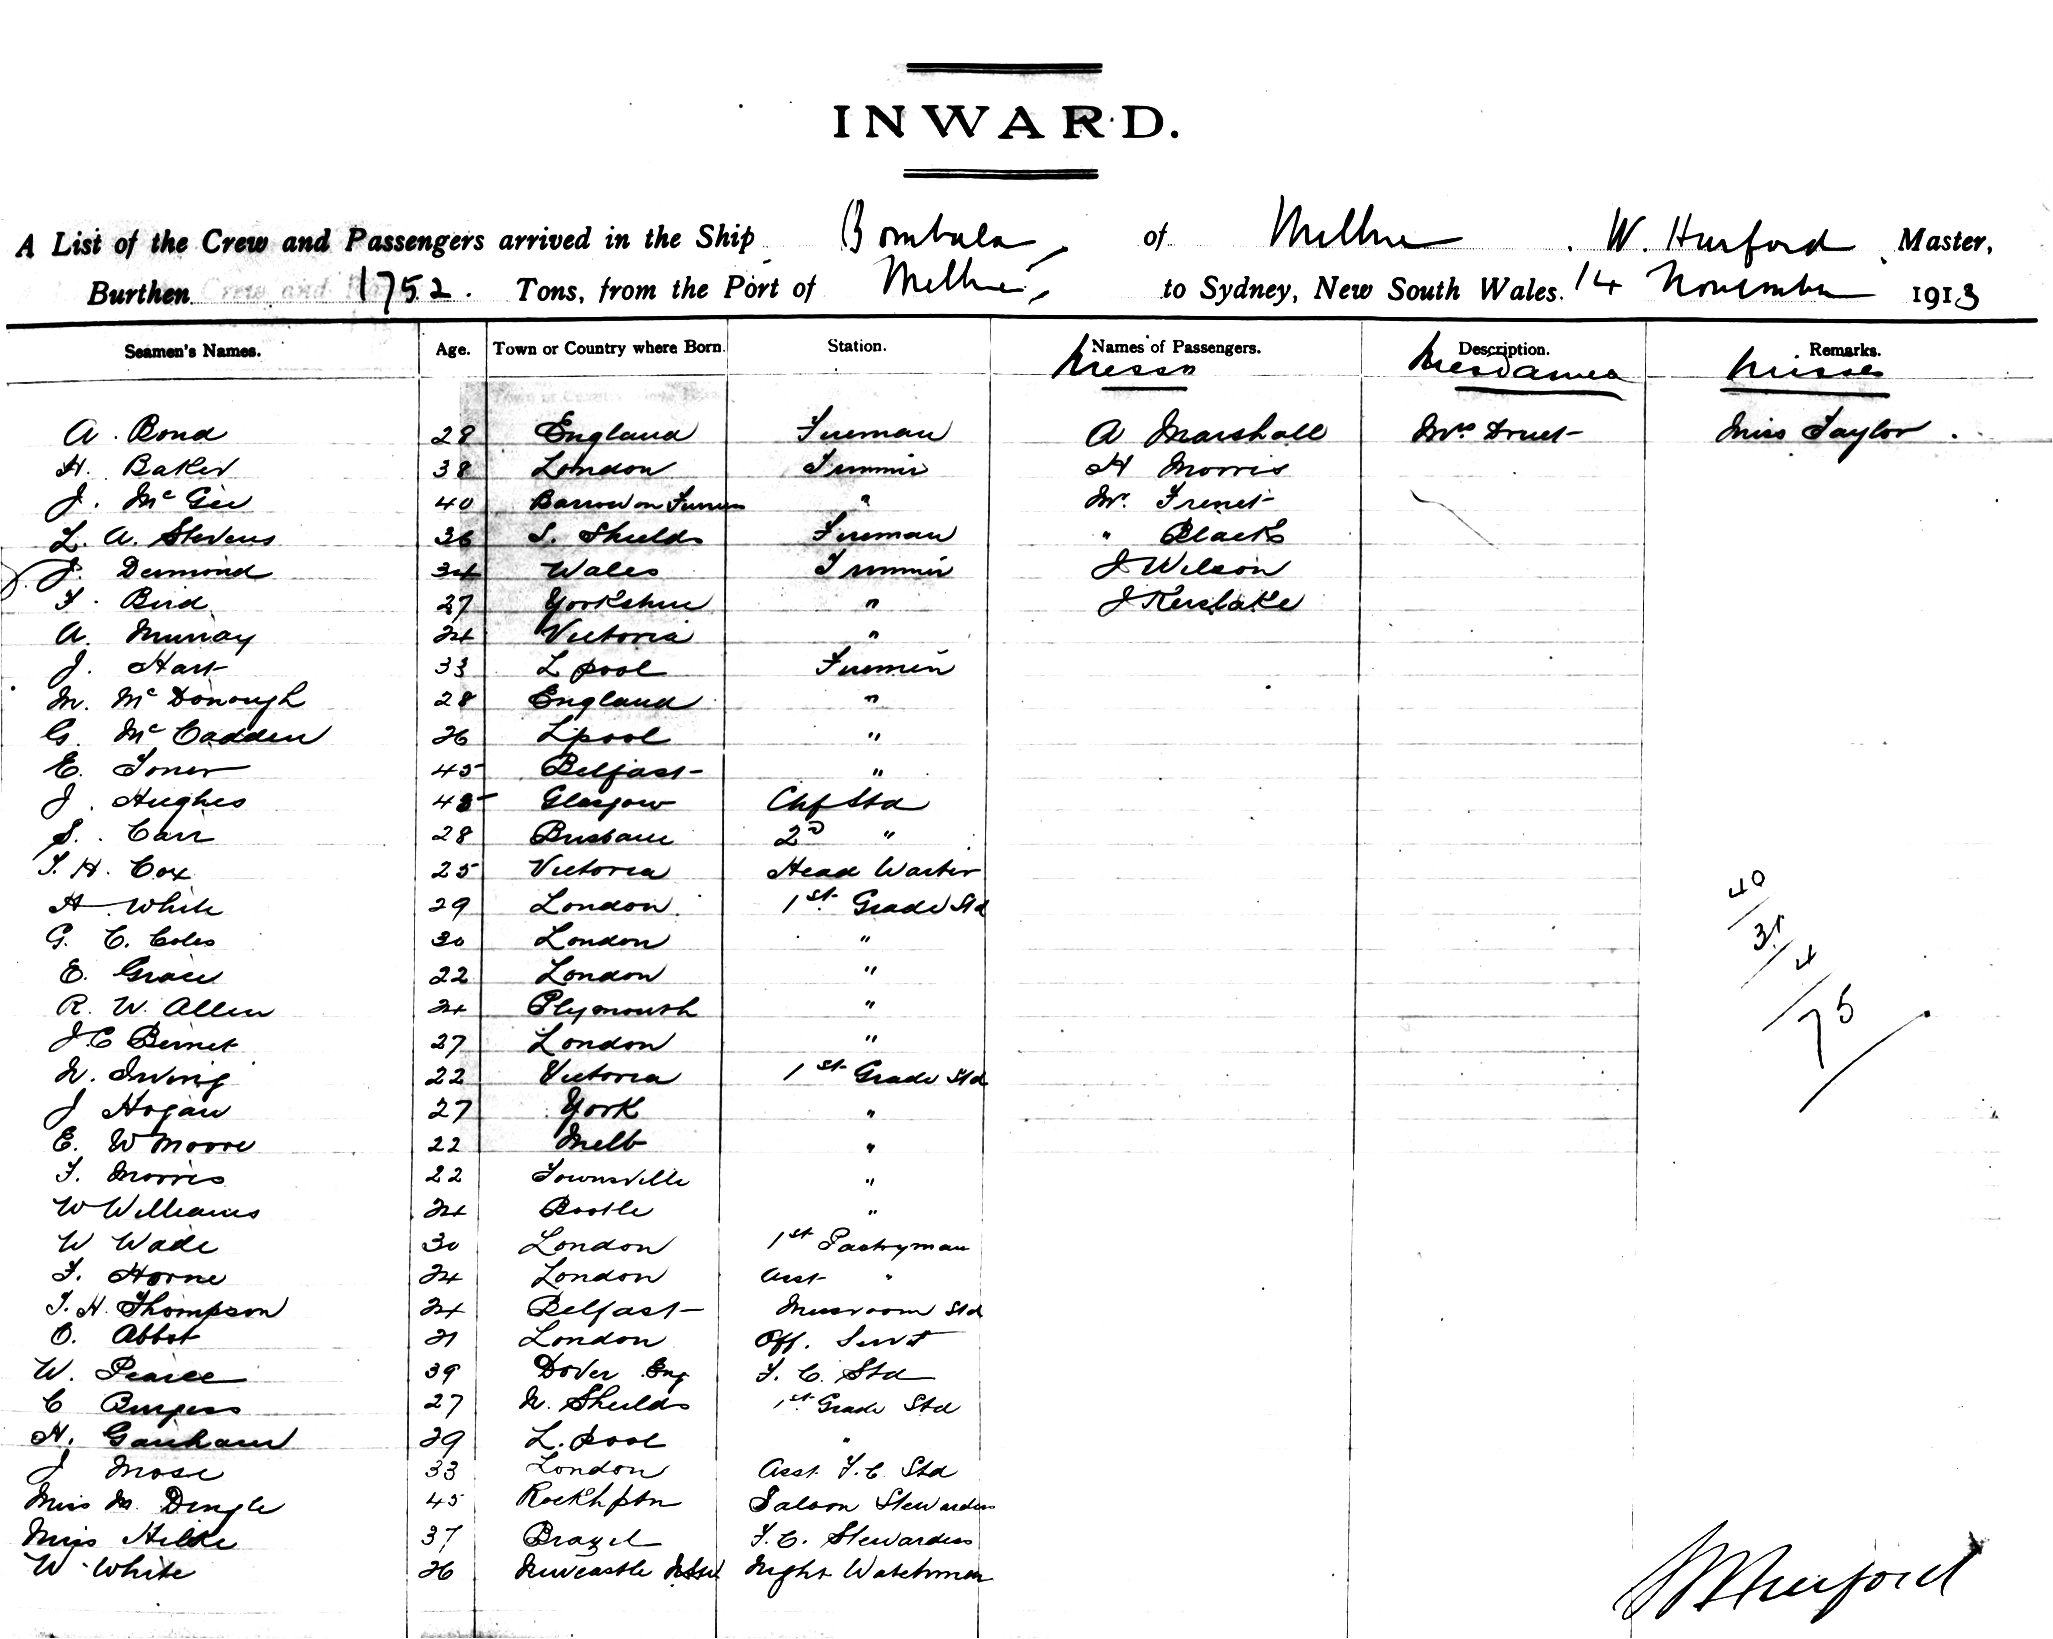 INWARD.
A List of the Crew and Passengers arrived in the Ship Bombala, of Melbne . W. Hurford Master,
Burthen 1752. Tons, from the Port of Melbne, to Sydney, New South Wales. 14 November 1913
Seamen's Names. Age. Town or Country where Born. Station. Names of Passengers. Description. Remarks.
Messrs Mesdames Misses
A. Bond 28 England Fireman A Marshall Mrs Druet Miss Taylor.
H. Baker 38 London Trimmer H Morris
J. McGee 40 Barrow on Furness " Mr. Frenet
L. A. Stevens 36 S. Shields Fireman " Black
J. Desmond 34 Wales Trimmer J Wilson
F. Bird 27 Yorkshire " J Kerslake
A. Murray 24 Victoria "
J. Hart 33 L pool Firemen
M. McDonough 28 England "
G. McCadden 26 L'pool "
E. Toner 45 Belfast "
J. Hughes 48 Glasgow Chf Std
S. Carr 28 Brisbane 2D "
T. H. Cox 25 Victoria Head Waiter
H. White 29 London. 1st Grade Std
G. C. Coles 30 London "
E. Grace 22 London "
R. W. Allen 24 Plymouth "
J. C Bernet 27 London "
N. Irving 22 Victoria 1st Grade Std
J Hogan 27 York "
E. W Moore 22 Melb "
F. Morris 22 Townsville "
W Williams 24 Bootle "
W Wade 30 London 1st Pastryman
F. Horne 24 London Asst "
T. H. Thompson 24 Belfast Messroom Std
O. Abbot 21 London Off. Servt
W. Pearce 39 Dover Eng F. C. Std
C Burgess 27 N. Shields 1st Grade Std
H. Ganham 29 L. pool "
J Mose 33 London Asst F. C. Std
Miss M. Dingle 45 Rockhptn Saloon Stewardess
Miss Hilke 37 Brazil F. C. Stewardess
W. White 26 Newcastle NSW Night Watchman
40
31
4
75
W Hurford